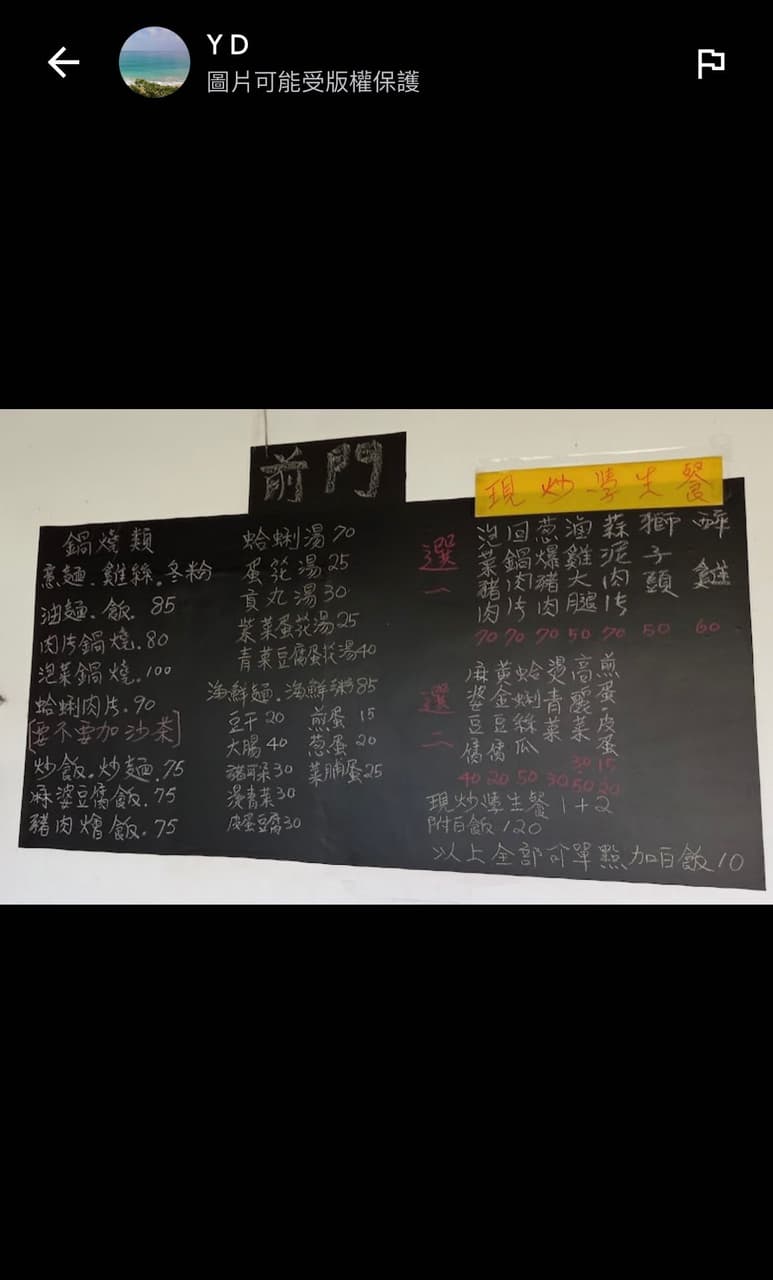 Y D
圖片可能受版權保護
前門
現炒學生餐
鍋燒類
意麵.雞絲.冬粉
油麵.飯. 85
肉片鍋燒.80
泡菜鍋燒.100
蛤蜊肉片.90
[要不要加沙茶]
炒飯.炒麵.75
麻婆豆腐飯.75
豬肉燴飯.75
蛤蜊湯70
蛋花湯25
貢丸湯30
紫菜蛋花湯25
青菜豆腐蛋花湯40
海鮮麵.海鮮粥85
豆干20 煎蛋 15
大腸40 葱蛋 20
豬耳朵30 菜脯蛋25
燙青菜30
皮蛋豆腐30
選一
泡菜豬肉 70
回鍋肉片 70
葱爆豬肉 70
滷雞大腿 50
蒜泥肉片 70
獅子頭 50
醉雞 60
選二
麻婆豆腐 40
黃金豆腐 20
蛤蜊絲瓜 50
燙青菜 30
高麗菜 30 50
煎蛋 15
皮蛋 20
現炒學生餐 1+2
附白飯 120
以上全部可單點加白飯10